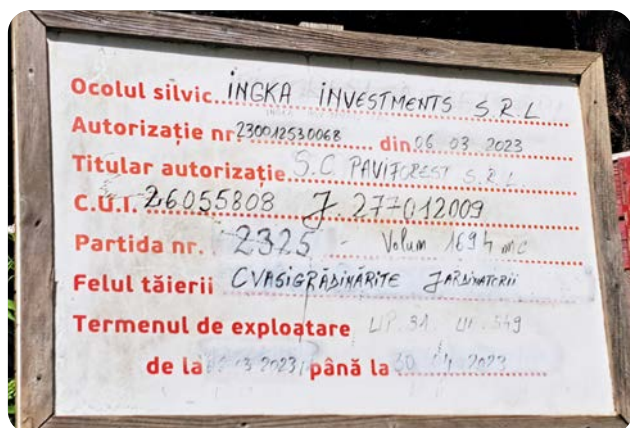 Ocolul silvic INGKA INVESTMENTS S.R.L
Autorizație nr 230012530068 din 06 03 2023
Titular autorizație S.C. PAVIFOREST S.R.L.
C.U.I. 26055808 J. 277012009
Partida nr. 2325 - Volum 1694 mc
Felul tăierii CVASIGRĂDINĂRITE JARDINATORII
Termenul de exploatare UP. 31. 549
de la 3 2023 până la 30 2023